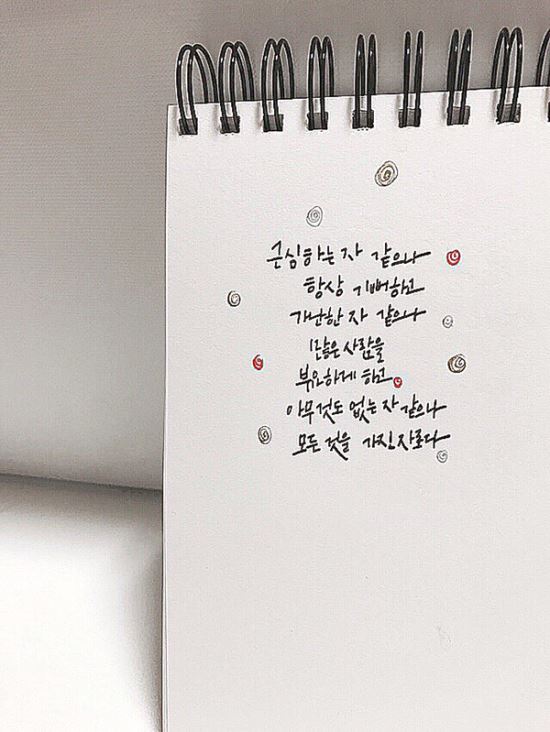 근심하는 자 같으나
항상 기뻐하고
가난한 자 같으나
많은 사람을
부요하게 하고
아무것도 없는 자 같으나
모든 것을 가진 자로다